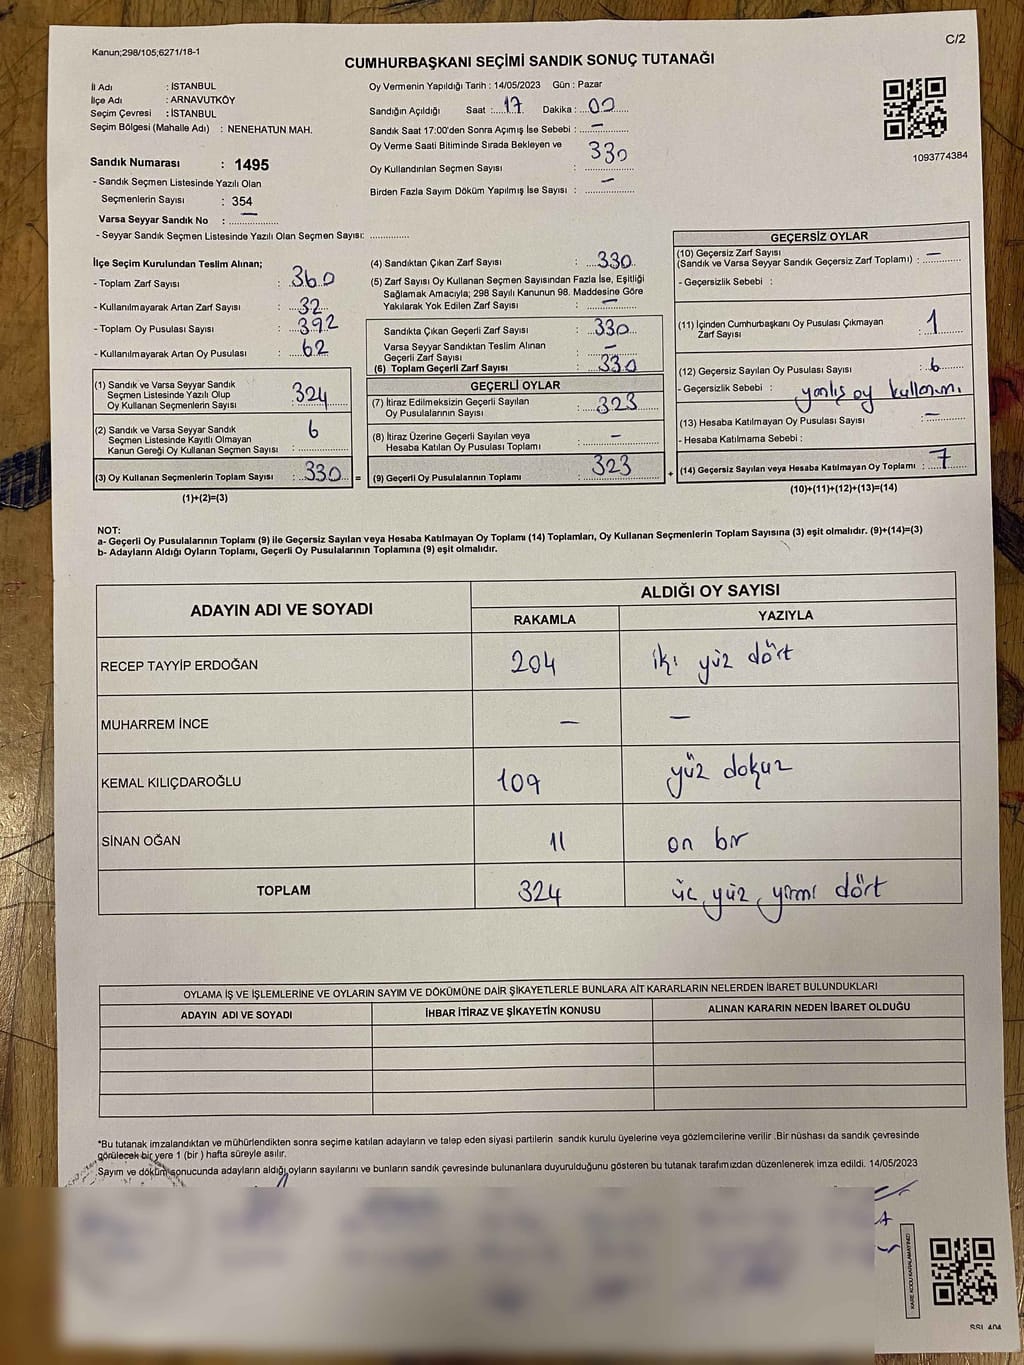 Kanun;298/105;6271/18-1
C/2
CUMHURBAŞKANI SEÇİMİ SANDIK SONUÇ TUTANAĞI
İl Adı : İSTANBUL
İlçe Adı : ARNAVUTKÖY
Seçim Çevresi : İSTANBUL
Seçim Bölgesi (Mahalle Adı) : NENEHATUN MAH.
Sandık Numarası : 1495
- Sandık Seçmen Listesinde Yazılı Olan
Seçmenlerin Sayısı : 354
Varsa Seyyar Sandık No : —
- Seyyar Sandık Seçmen Listesinde Yazılı Olan Seçmen Sayısı: ..............
Oy Vermenin Yapıldığı Tarih : 14/05/2023 Gün : Pazar
Sandığın Açıldığı Saat : 17 Dakika : 00
Sandık Saat 17:00'den Sonra Açımış İse Sebebi : —
Oy Verme Saati Bitiminde Sırada Bekleyen ve
Oy Kullandırılan Seçmen Sayısı : 330
Birden Fazla Sayım Döküm Yapılmış İse Sayısı : —
1093774384
İlçe Seçim Kurulundan Teslim Alınan;
- Toplam Zarf Sayısı : 360
- Kullanılmayarak Artan Zarf Sayısı : 32
- Toplam Oy Pusulası Sayısı : 392
- Kullanılmayarak Artan Oy Pusulası : 62
(1) Sandık ve Varsa Seyyar Sandık
Seçmen Listesinde Yazılı Olup
Oy Kullanan Seçmenlerin Sayısı : 324
(2) Sandık ve Varsa Seyyar Sandık
Seçmen Listesinde Kayıtlı Olmayan
Kanun Gereği Oy Kullanan Seçmen Sayısı : 6
(3) Oy Kullanan Seçmenlerin Toplam Sayısı : 330 =
(1)+(2)=(3)
(4) Sandıktan Çıkan Zarf Sayısı : 330
(5) Zarf Sayısı Oy Kullanan Seçmen Sayısından Fazla İse, Eşitliği
Sağlamak Amacıyla; 298 Sayılı Kanunun 98. Maddesine Göre
Yakılarak Yok Edilen Zarf Sayısı : —
Sandıkta Çıkan Geçerli Zarf Sayısı : 330
Varsa Seyyar Sandıktan Teslim Alınan
Geçerli Zarf Sayısı : —
(6) Toplam Geçerli Zarf Sayısı : 330
GEÇERLİ OYLAR
(7) İtiraz Edilmeksizin Geçerli Sayılan
Oy Pusulalarının Sayısı : 323
(8) İtiraz Üzerine Geçerli Sayılan veya
Hesaba Katılan Oy Pusulası Toplamı : —
(9) Geçerli Oy Pusulalarının Toplamı : 323 +
GEÇERSİZ OYLAR
(10) Geçersiz Zarf Sayısı
(Sandık ve Varsa Seyyar Sandık Geçersiz Zarf Toplamı) : —
- Geçersizlik Sebebi :
(11) İçinden Cumhurbaşkanı Oy Pusulası Çıkmayan
Zarf Sayısı : 1
(12) Geçersiz Sayılan Oy Pusulası Sayısı : 6
- Geçersizlik Sebebi : yanlış oy kullanımı
(13) Hesaba Katılmayan Oy Pusulası Sayısı : —
- Hesaba Katılmama Sebebi :
(14) Geçersiz Sayılan veya Hesaba Katılmayan Oy Toplamı : 7
(10)+(11)+(12)+(13)=(14)
NOT:
a- Geçerli Oy Pusulalarının Toplamı (9) ile Geçersiz Sayılan veya Hesaba Katılmayan Oy Toplamı (14) Toplamları, Oy Kullanan Seçmenlerin Toplam Sayısına (3) eşit olmalıdır. (9)+(14)=(3)
b- Adayların Aldığı Oyların Toplamı, Geçerli Oy Pusulalarının Toplamına (9) eşit olmalıdır.
ADAYIN ADI VE SOYADI
ALDIĞI OY SAYISI
RAKAMLA YAZIYLA
RECEP TAYYİP ERDOĞAN 204 iki yüz dört
MUHARREM İNCE — —
KEMAL KILIÇDAROĞLU 109 yüz dokuz
SİNAN OĞAN 11 on bir
TOPLAM 324 üç yüz yirmi dört
OYLAMA İŞ VE İŞLEMLERİNE VE OYLARIN SAYIM VE DÖKÜMÜNE DAİR ŞİKAYETLERLE BUNLARA AİT KARARLARIN NELERDEN İBARET BULUNDUKLARI
ADAYIN ADI VE SOYADI İHBAR İTİRAZ VE ŞİKAYETİN KONUSU ALINAN KARARIN NEDEN İBARET OLDUĞU
*Bu tutanak imzalandıktan ve mühürlendikten sonra seçime katılan adayların ve talep eden siyasi partilerin sandık kurulu üyelerine veya gözlemcilerine verilir .Bir nüshası da sandık çevresinde
görülecek bir yere 1 (bir ) hafta süreyle asılır.
Sayım ve döküm sonucunda adayların aldığı oyların sayılarını ve bunların sandık çevresinde bulunanlara duyurulduğunu gösteren bu tutanak tarafımızdan düzenlenerek imza edildi. 14/05/2023
KARE KODU KARALAMAYINIZ!